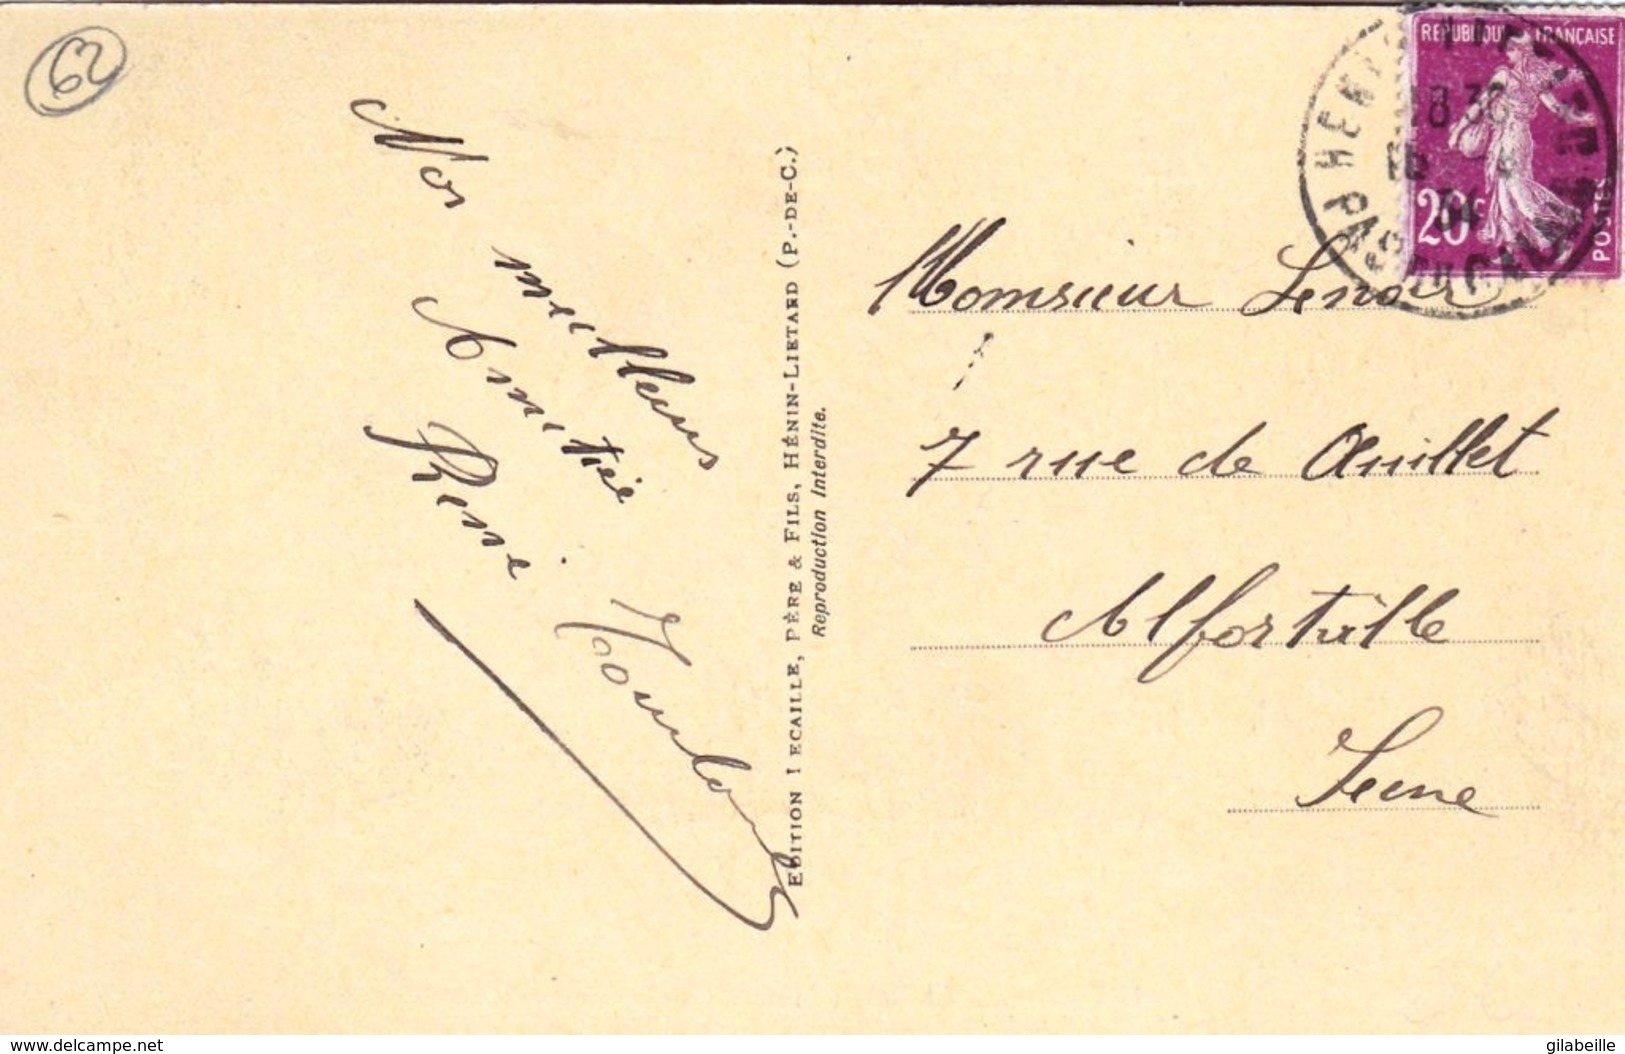 62
Nos
meilleurs
Amitié
René
EDITION LECAILLE, PÈRE & FILS, HÉNIN-LIETARD (P.-DE-C.)
Reproduction Interdite.
REPUBLIQUE FRANÇAISE
20c
POSTES
18 30
Monsieur Lenoir
7 rue de
Alfortville
Seine
www.delcampe.net
gilabeille